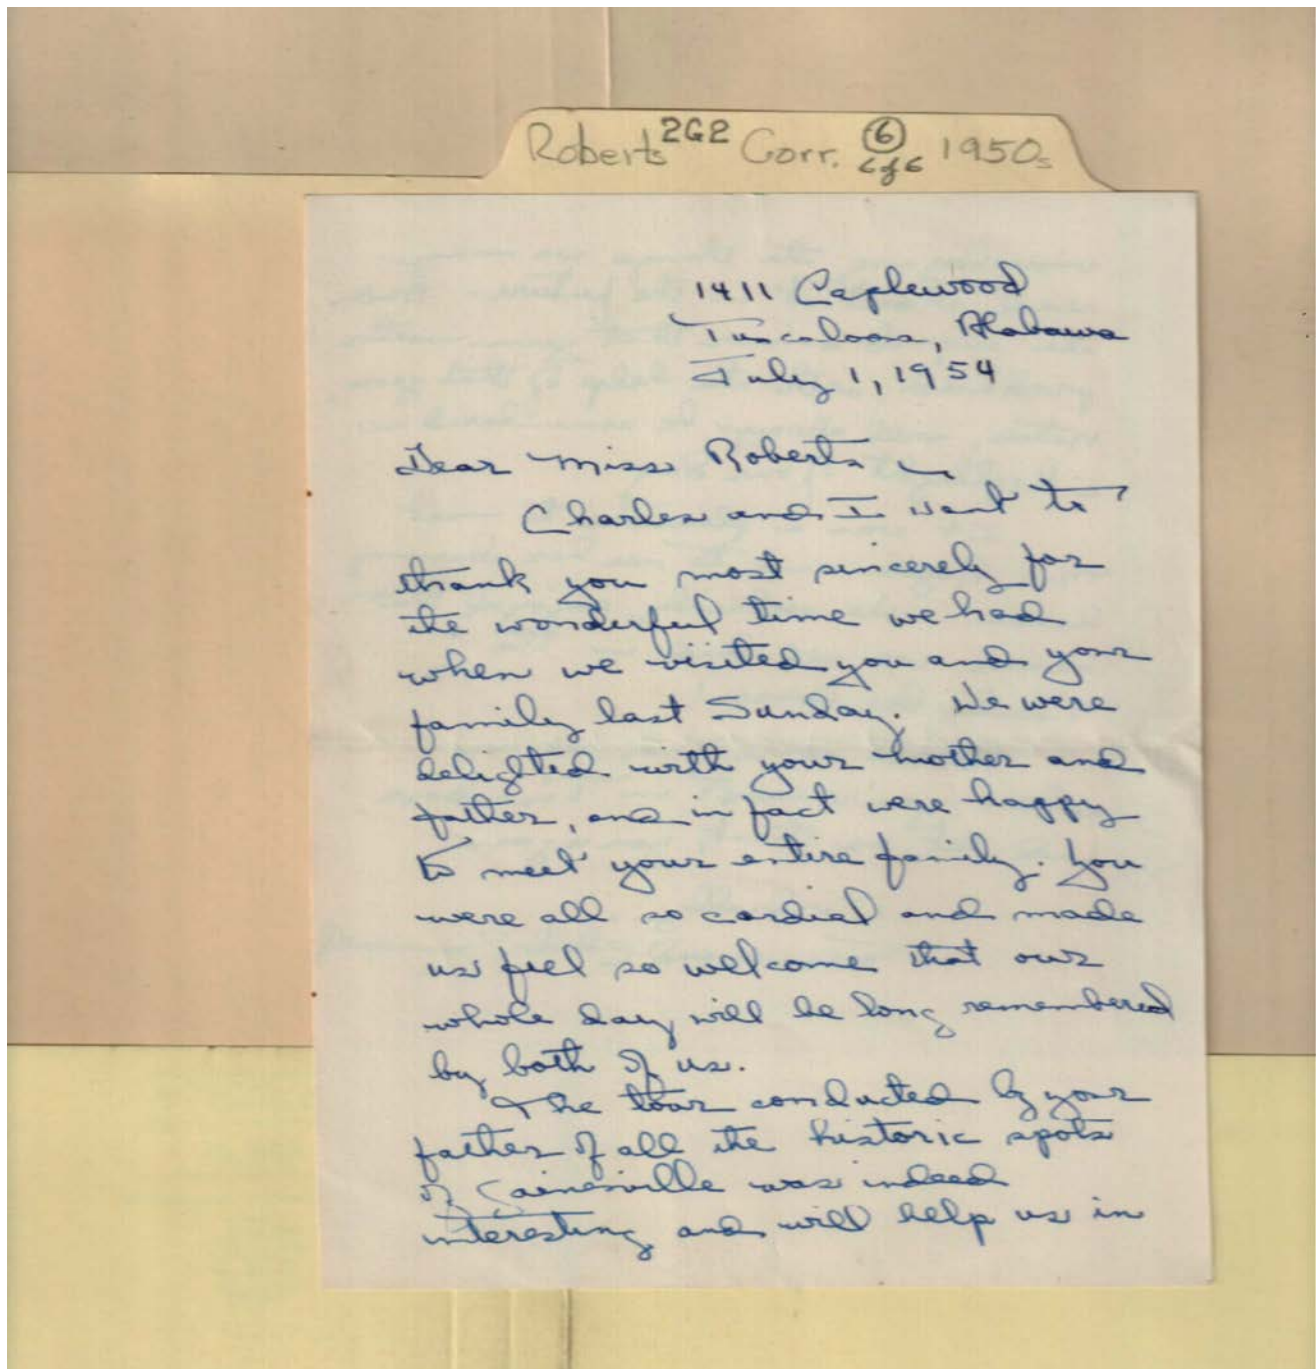 Roberts 2G2 Corr. 6 1950s
6 of 6
1411 Caplewood
Tuscaloosa, Alabama
July 1, 1954
Dear Miss Roberts —
Charles and I want to
thank you most sincerely for
the wonderful time we had
when we visited you and your
family last Sunday. We were
delighted with your mother and
father, and in fact were happy
to meet your entire family. You
were all so cordial and made
us feel so welcome that our
whole day will be long remembered
by both of us.
The tour conducted by your
father of all the historic spots
of Gainesville was indeed
interesting and will help us in